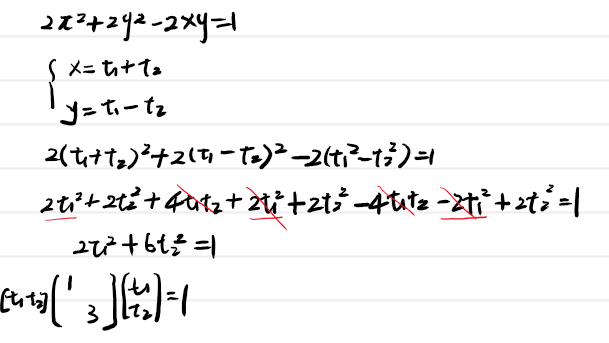 2x²+2y²-2xy=1
{ x=t₁+t₂
y=t₁-t₂
2(t₁+t₂)²+2(t₁-t₂)²-2(t₁²-t₂²)=1
2t₁²+2t₂²+4t₁t₂+2t₁²+2t₂²-4t₁t₂-2t₁²+2t₂²=1
2t₁²+6t₂²=1
[t₁ t₂][1 3][t₁ t₂]=1